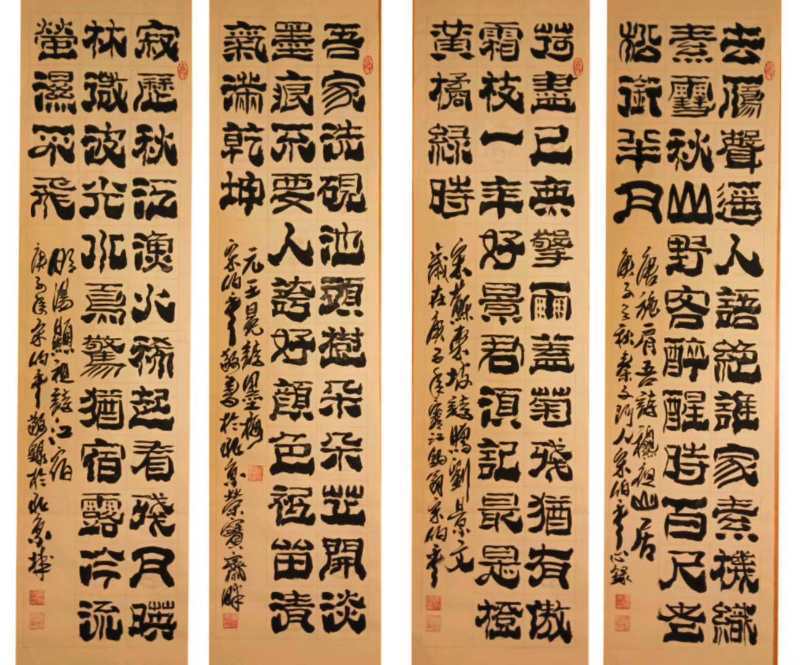 去鴈聲遥人語絕誰家素機織
素雪秋山野客醉醒時百尺老
松銜半月
唐施肩吾詩秋夜山居
荷盡已無擎雨蓋菊殘猶有傲
霜枝一年好景君須記最是橙
黃橘綠時
宋蘇東坡詩贈劉景文
歲在庚子年寒江釣翁宋伯季
吾家洗硯池頭樹朵朵花開淡
墨痕不要人誇好顔色祗留清
氣滿乾坤
元王冕詩墨梅
宋伯季敬書於北京榮寶齋畔
寂歷秋江漁火稀起看殘月映
林微波光水鳥驚猶宿露冷流
螢濕不飛
明湯顯祖詩江宿
庚子年宋伯季敬録於北京